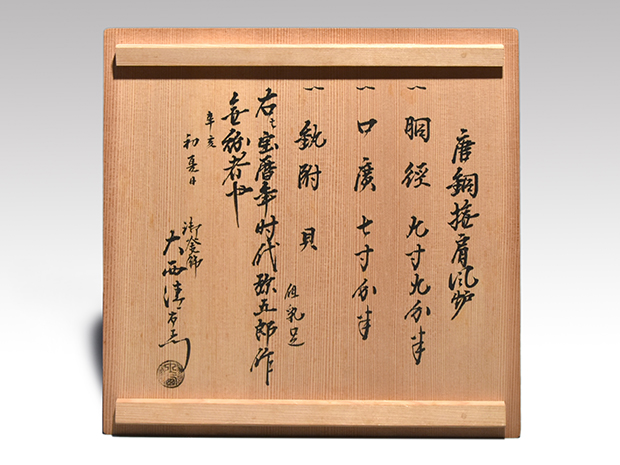 唐銅撫肩風炉
一 胴径 九寸九分半
一 口廣 七寸分半
一 釻附 貝
但乳足
右之宝暦年時代弥五郎作
無紛者也
辛亥
初夏日
御釜師
大西清右衛門